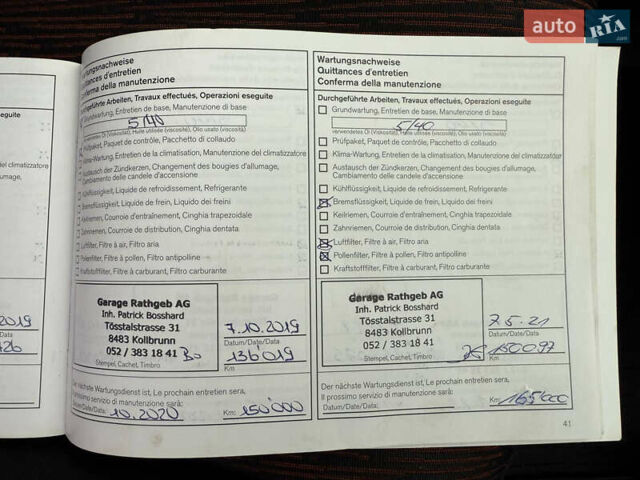 auto RIA .com
eguite
del climatizzatore
umage,
2019
426
Wartungsnachweise
Quittances d'entretien
Conferma della manutenzione
Durchgeführte Arbeiten, Travaux effectués, Operazioni eseguite
Grundwartung, Entretien de base, Manutenzione di base
5/40
verwendetes Öl (Viskosität), Huile utilisée (viscosité), Olio usato (viscosità)
Prüfpaket, Paquet de contrôle, Pacchetto di collaudo
Klima-Wartung, Entretien de la climatisation, Manutenzione del climatizzatore
Austausch der Zündkerzen, Changement des bougies d'allumage,
Cambiamento delle candele d'accensione
Kühlflüssigkeit, Liquide de refroidissement, Refrigerante
Bremsflüssigkeit, Liquide de frein, Liquido dei freini
Keilriemen, Courroie d'entraînement, Cinghia trapezoidale
Zahnriemen, Courroie de distribution, Cinghia dentata
Luftfilter, Filtre à air, Filtro aria
Pollenfilter, Filtre à pollen, Filtro antipolline
Kraftstofffilter, Filtre à carburant, Filtro carburante
Garage Rathgeb AG
Inh. Patrick Bosshard
Tösstalstrasse 31
8483 Kollbrunn
052 / 383 18 41
Stempel, Cachet, Timbro
7.10.2019
Datum/Date/Data
136019
Km
Der nächste Wartungsdienst ist, Le prochain entretien sera,
Il prossimo servizio di manutenzione sarà:
Datum/Date/Data: 10.2020 Km: 150'000
Wartungsnachweise
Quittances d'entretien
Conferma della manutenzione
Durchgeführte Arbeiten, Travaux effectués, Operazioni eseguite
Grundwartung, Entretien de base, Manutenzione di base
5/40
verwendetes Öl (Viskosität), Huile utilisée (viscosité), Olio usato (viscosità)
Prüfpaket, Paquet de contrôle, Pacchetto di collaudo
Klima-Wartung, Entretien de la climatisation, Manutenzione del climatizzatore
Austausch der Zündkerzen, Changement des bougies d'allumage,
Cambiamento delle candele d'accensione
Kühlflüssigkeit, Liquide de refroidissement, Refrigerante
Bremsflüssigkeit, Liquide de frein, Liquido dei freini
Keilriemen, Courroie d'entraînement, Cinghia trapezoidale
Zahnriemen, Courroie de distribution, Cinghia dentata
Luftfilter, Filtre à air, Filtro aria
Pollenfilter, Filtre à pollen, Filtro antipolline
Kraftstofffilter, Filtre à carburant, Filtro carburante
Garage Rathgeb AG
Inh. Patrick Bosshard
Tösstalstrasse 31
8483 Kollbrunn
052 / 383 18 41
Stempel, Cachet, Timbro
7.5.21
Datum/Date/Data
150097
Km
Der nächste Wartungsdienst ist, Le prochain entretien sera,
Il prossimo servizio di manutenzione sarà:
Datum/Date/Data: Km: 165'000
41